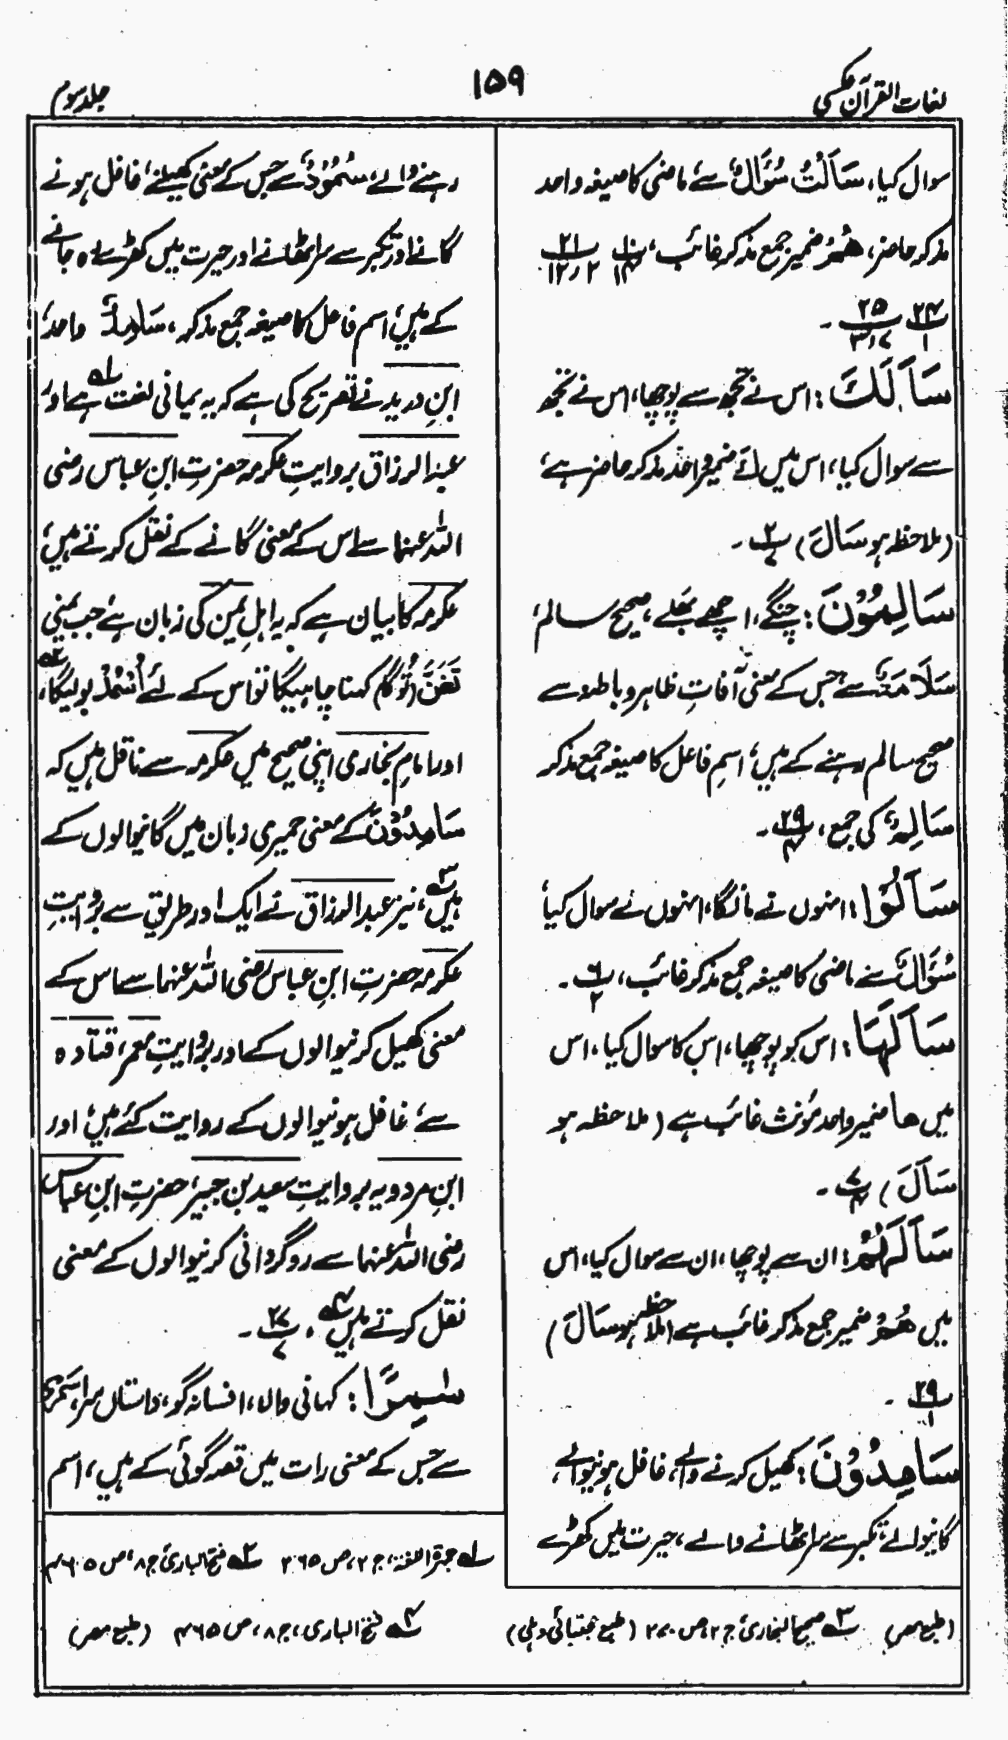 لغات القرآن عکسی
۱۵۹
جلد سوم
سوال کیا، سَأَلْتُ سُؤَالٌ سے ماضی کا صیغہ واحد
مذکر حاضر، هُمْ ضمیر جمع مذکر غائب،
۲۱
۱۲ر۲
۲۴
۱
۲۵
سَأَلَكَ: اس نے تجھ سے پوچھا، اس نے تجھ
سے سوال کیا، اس میں كَ ضمیر واحد مذکر حاضر ہے،
(ملاحظہ ہو سَأَلَ) ۲/۷ ۔
سَالِمُوْنَ: چنگے، اچھے بھلے، صحیح سالم،
سَلَامَةٌ سے جس کے معنی آفاتِ ظاہر و باطن سے
صحیح سالم رہنے کے ہیں، اسمِ فاعل کا صیغہ جمع مذکر
سَالِمٌ کی جمع، ۲۹/۴ ۔
سَأَلُوْا: انہوں نے مانگا، انہوں نے سوال کیا،
سُؤَالٌ سے ماضی کا صیغہ جمع مذکر غائب، ۶/۲ ۔
سَأَلَهَا: اس کو پوچھا، اس کا سوال کیا، اس
میں ها ضمیر واحد مؤنث غائب ہے (ملاحظہ ہو
سَأَلَ) ۷/۴ ۔
سَأَلَهُمْ: ان سے پوچھا، ان سے سوال کیا، اس
میں هُمْ ضمیر جمع مذکر غائب ہے (ملاحظہ ہو سَأَلَ)
۲۹/۱ ۔
سَامِدُوْنَ: کھیل کرنے والے، غافل ہونیوالے،
گانیوالے تکبر سے سر اٹھانے والے، حیرت میں کھڑے
رہنے والے، سُمُوْدٌ سے جس کے معنی کھیلنے، غافل ہونے
گانے اور تکبر سے سر اٹھانے اور حیرت میں کھڑے رہ جانے
کے ہیں، اسم فاعل کا صیغہ جمع مذکر، سَامِدٌ واحد،
ابنِ درید نے تصریح کی ہے کہ یہ یمانی لغت ہے۱ اور
عبد الرزاق بروایتِ عکرمہ حضرتِ ابنِ عباس رضی
اللہ عنہما سے اس کے معنی گانے کے نقل کرتے ہیں،
عکرمہ کا بیان ہے کہ یہ اہلِ یمن کی زبان ہے جب یمنی
تَغَنَّ (تو گا) کہنا چاہیگا تو اس کے لئے اُسْمُدْ بولیگا،۲
اور امامِ بخاری اپنی صحیح میں عکرمہ سے ناقل ہیں کہ
سَامِدُوْنَ کے معنی حمیری زبان میں گانیوالوں کے
ہیں،۳ نیز عبد الرزاق نے ایک اور طریق سے بروایتِ
عکرمہ حضرتِ ابنِ عباس رضی اللہ عنہما سے اس کے
معنی کھیل کرنیوالوں کے اور بروایتِ معمر، قتادہ
سے، غافل ہونیوالوں کے روایت کئے ہیں، اور
ابنِ مردویہ بروایتِ سعید بن جبیر، حضرتِ ابنِ عباس
رضی اللہ عنہما سے روگردانی کرنیوالوں کے معنی
نقل کرتے ہیں۴، ۲۷/۷ ۔
سٰمِرًا: کہانی والا، افسانہ گو، داستاں سرا، سَمَرٌ
سے جس کے معنی رات میں قصہ گوئی کے ہیں، اسم
۱ جمہرۃ اللغۃ، ج ۲، ص ۲۶۵ ۲ فتح الباری، ج ۸، ص ۴۶۵
(طبع مصر) ۳ صحیح البخاری، ج ۲، ص ۷۲۰ (طبع مجتبائی دہلی) ۴ فتح الباری، ج ۸، ص ۴۶۵ (طبع مصر)